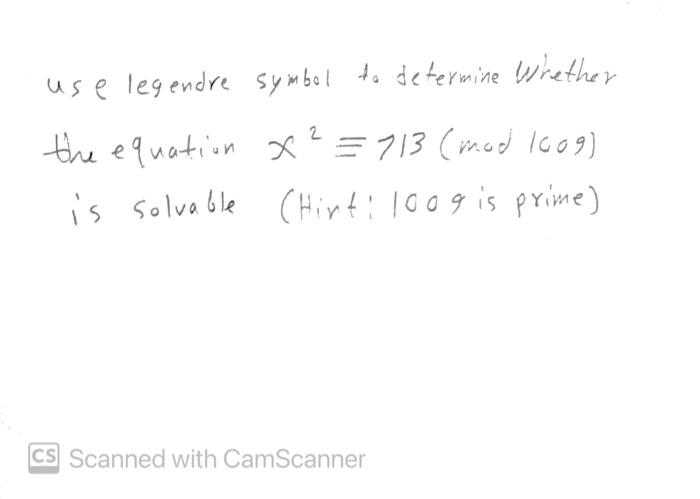 use legendre symbol to determine Whether
the equation x² ≡ 713 (mod 1009)
is solvable (Hint: 1009 is prime)
CS Scanned with CamScanner